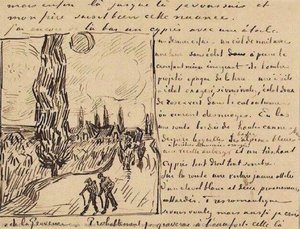 mais enfin là jusque là je vous suis et
mon frère saisit bien cette nuance.
J'ai encore de là bas un cyprès avec une étoile
un dernier essai – un ciel de nuit avec
une lune sans éclat à peine le
croissant mince émergeant de l'ombre
projetée opaque de la terre – une étoile
à éclat exagéré, si vous voulez, éclat doux
de rose & vert dans le ciel outremer
où courent des nuages. En bas
une route bordée de hautes cannes
jaunes derrière lesquelles les basses Alpines bleues
une vieille auberge à fenêtres illuminées orangée et un très haut
cyprès tout droit tout sombre.
Sur la route une voiture jaune attelée
d'un cheval blanc et deux promeneurs
attardés. Très romantique
si vous voulez mais aussi je crois
de la Provence. Probablement je graverai à l'eau forte celle là